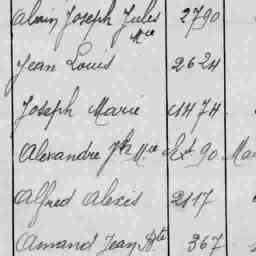 Alain Joseph Jules Mie 2790
Jean Louis 2624
Joseph Marie C1474
Alexandre Jh Mie Ext 90
Alfred Alexis 2117
Amand Jean Bte 367